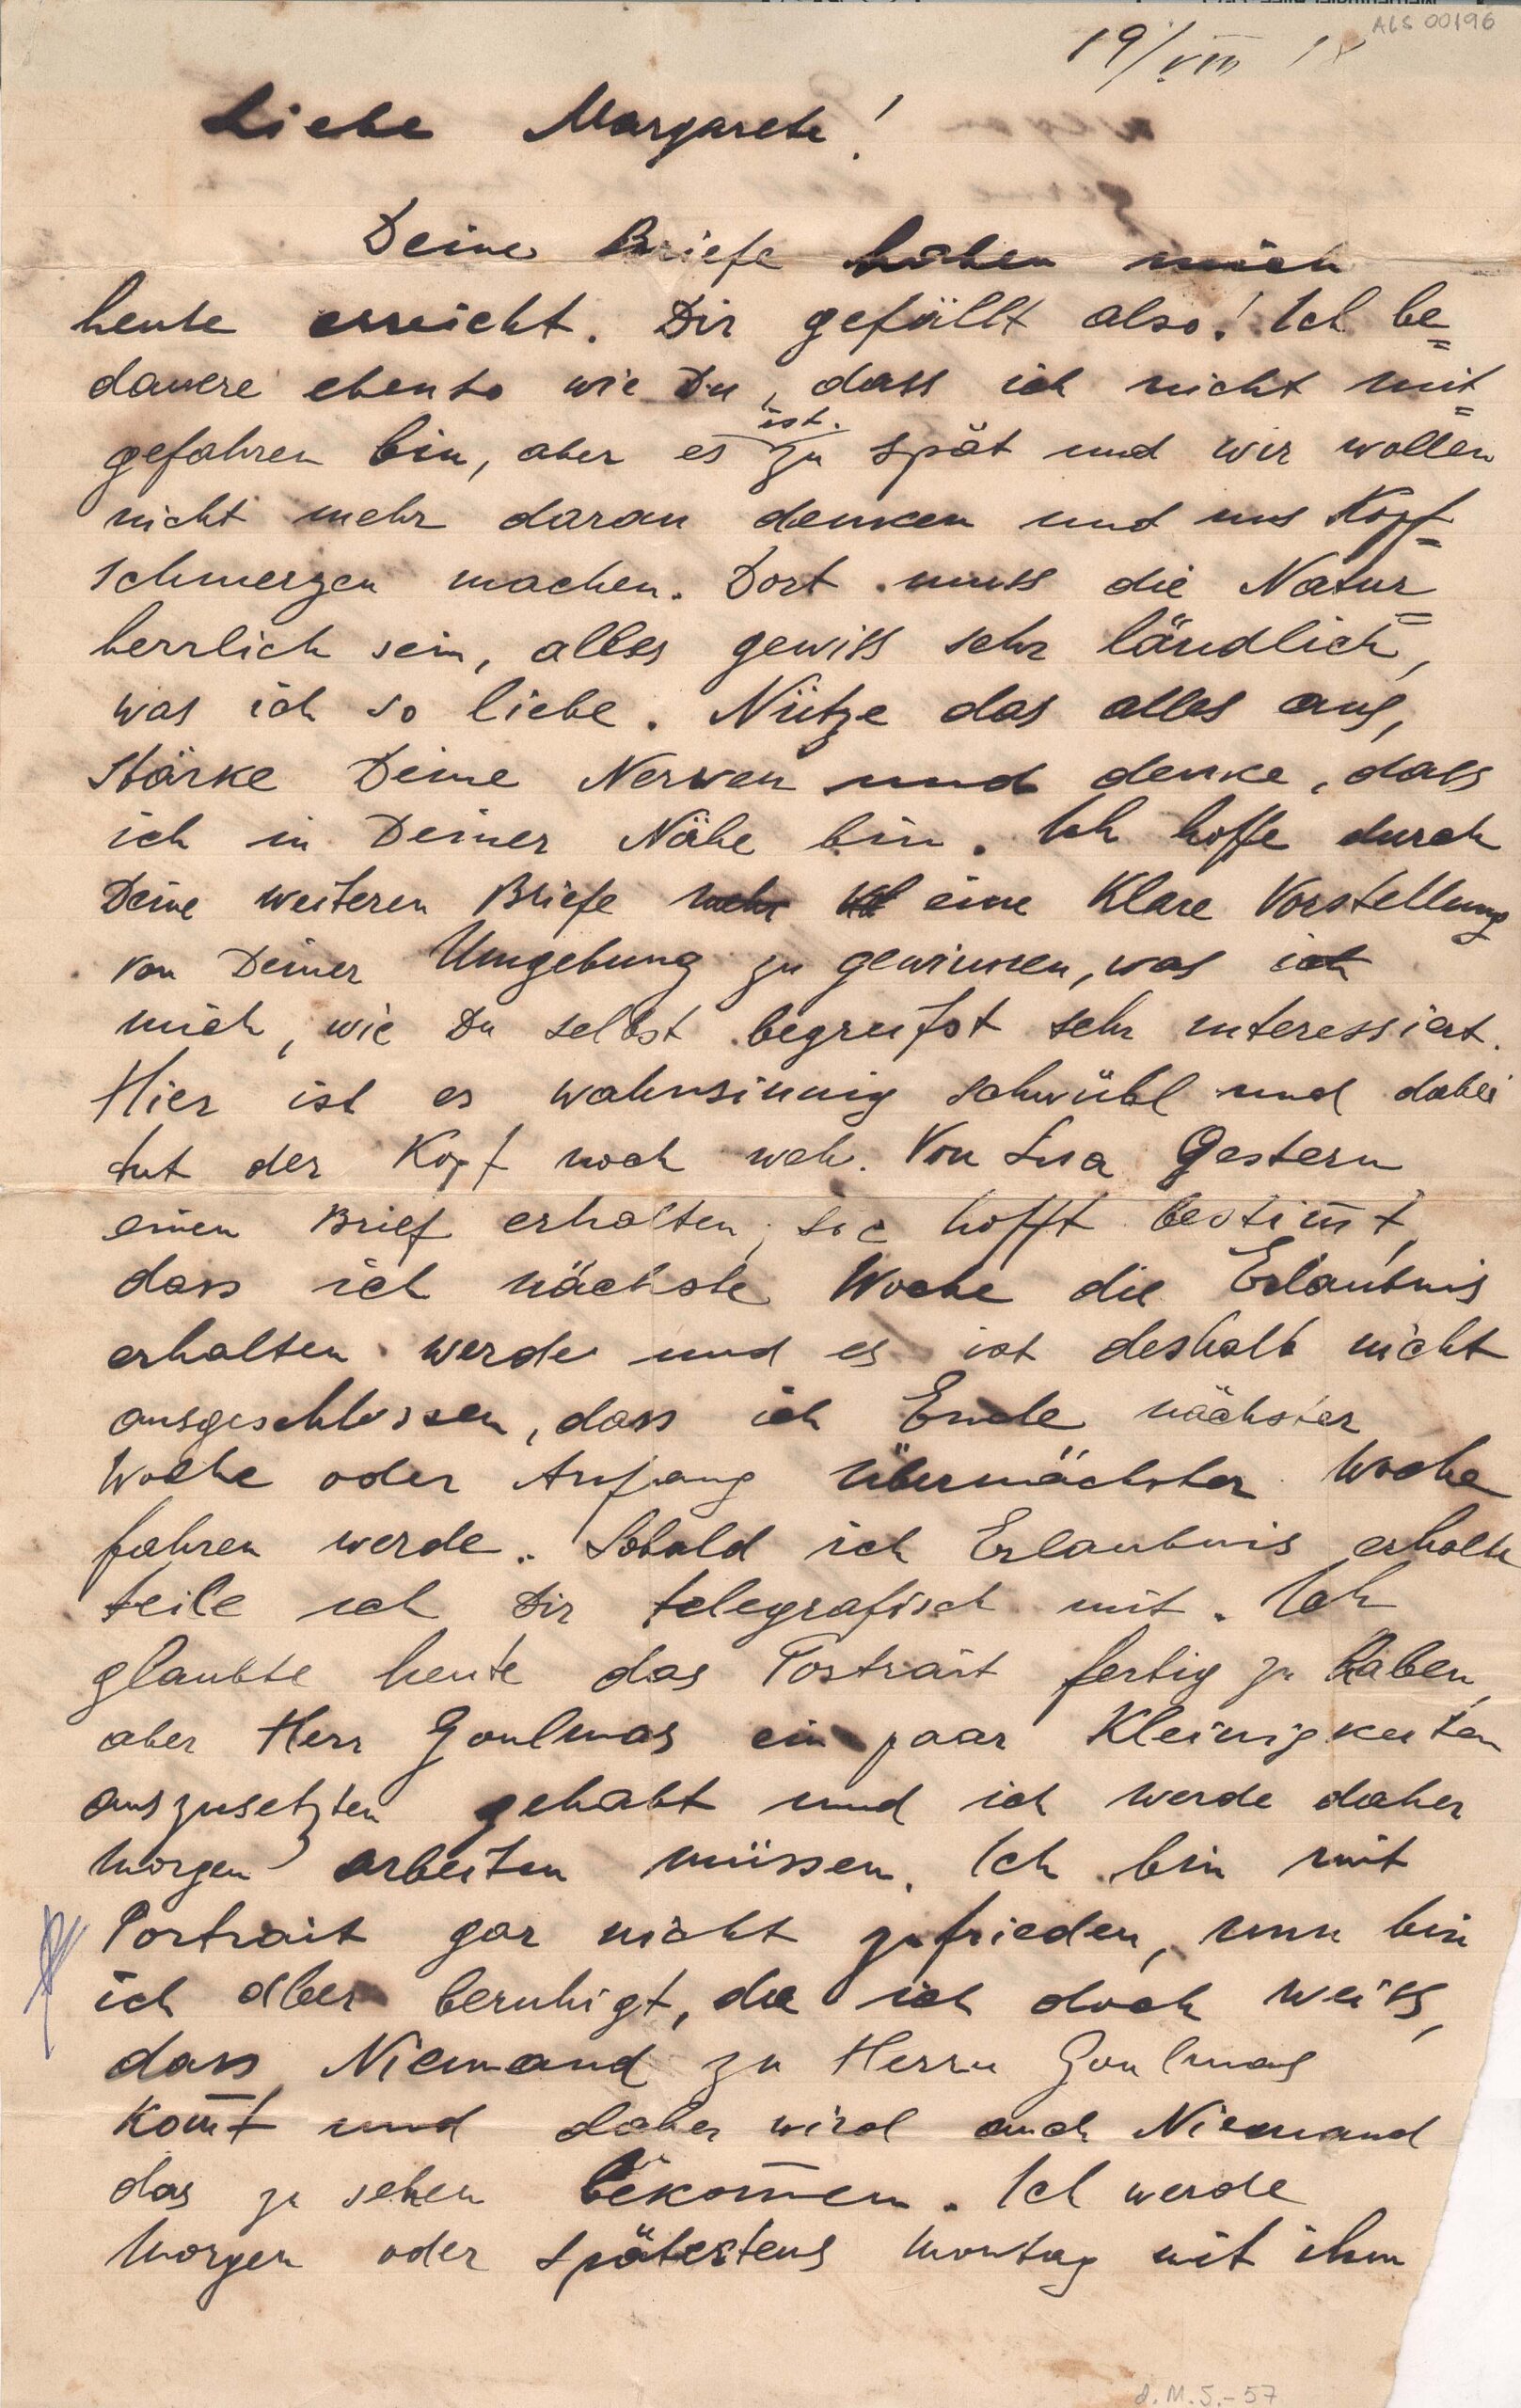 ALS 00196
19/VIII 18
Liebe Margarete!
Deine Briefe haben mich
heute erreicht. Dir gefällt also! Ich be=
dauere ebenso wie Du, dass ich nicht mit=
gefahren bin, aber es ist zu spät und wir wollen
nicht mehr daran denken und uns Kopf=
schmerzen machen. Dort muss die Natur=
herrlich sein, alles gewiss sehr ländlich,
was ich so liebe. Nütze das alles aus,
stärke Deine Nerven und denke, dass
ich in Deiner Nähe bin. Ich hoffe durch
Deine weiteren Briefe mehr eine klare Vorstellung
von Deiner Umgebung zu gewinnen, was ich
mich, wie Du selbst begreifst sehr interessiert.
Hier ist es wahnsinnig schwübl und dabei
tut der Kopf noch weh. Von Gestern
einen Brief erhalten, sie hofft bestim̄t,
dass ich nächste Woche die Erlaubnis
erhalten werde und es ist deshalb nicht
ausgeschlossen, dass ich Ende nächster
Woche oder Anfang übernächster Woche
fahren werde. Sobald ich Erlaubnis erhalte
teile ich Dir telegrafisch mit. Ich
glaubte heute das Portrait fertig zu haben,
aber Herr Goulmas ein paar Kleinigkeiten
auszusetzten gehabt und ich werde daher
morgen arbeiten müssen. Ich bin mit
Portrait gar nicht zufrieden, nun bin
ich aber beruhigt, da ich doch weiss,
dass Niemand zu Herrn Goulmas
kom̄t und daher wird auch Niemand
das zu sehen bekom̄en. Ich werde
morgen oder spätestens Montag mit ihm
d.M.S.-57